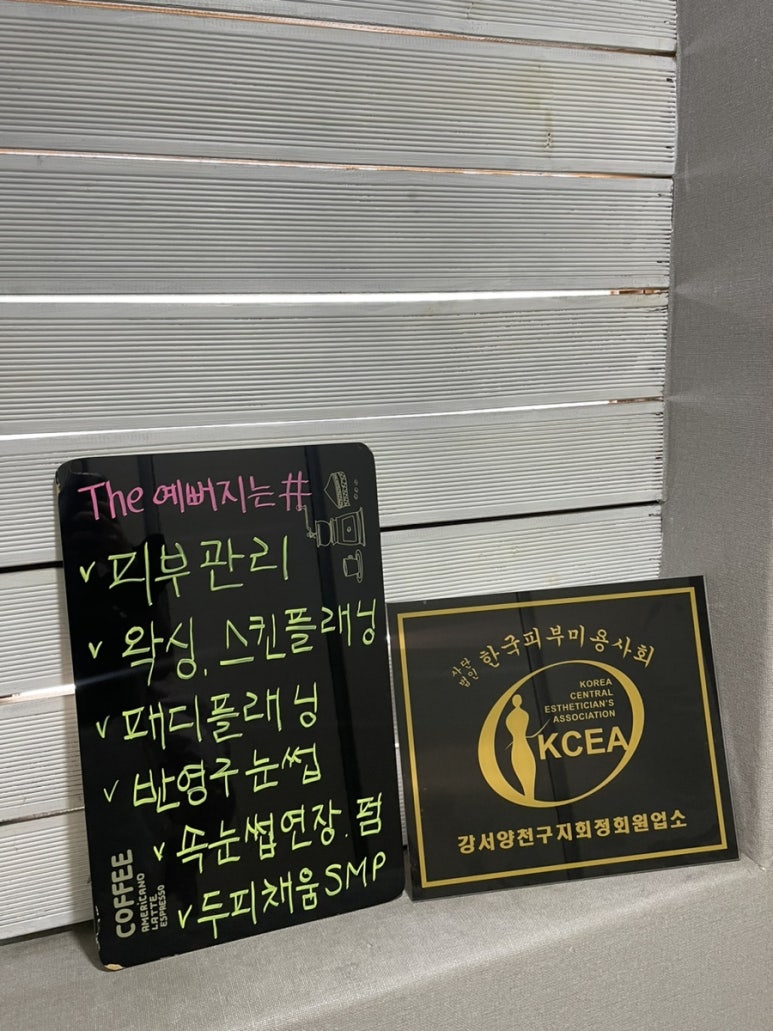 The 예뻐지는#
v 피부관리
v 왁싱. 스킨플래닝
v 패디플래닝
v 반영구눈썹
v 속눈썹연장.펌
v 두피채움SMP
COFFEE
AMERICANO
LATTE
ESPRESSO
사단법인 한국피부미용사회
KOREA
CENTRAL
ESTHETICIAN'S
ASSOCIATION
KCEA
강서양천구지회정회원업소